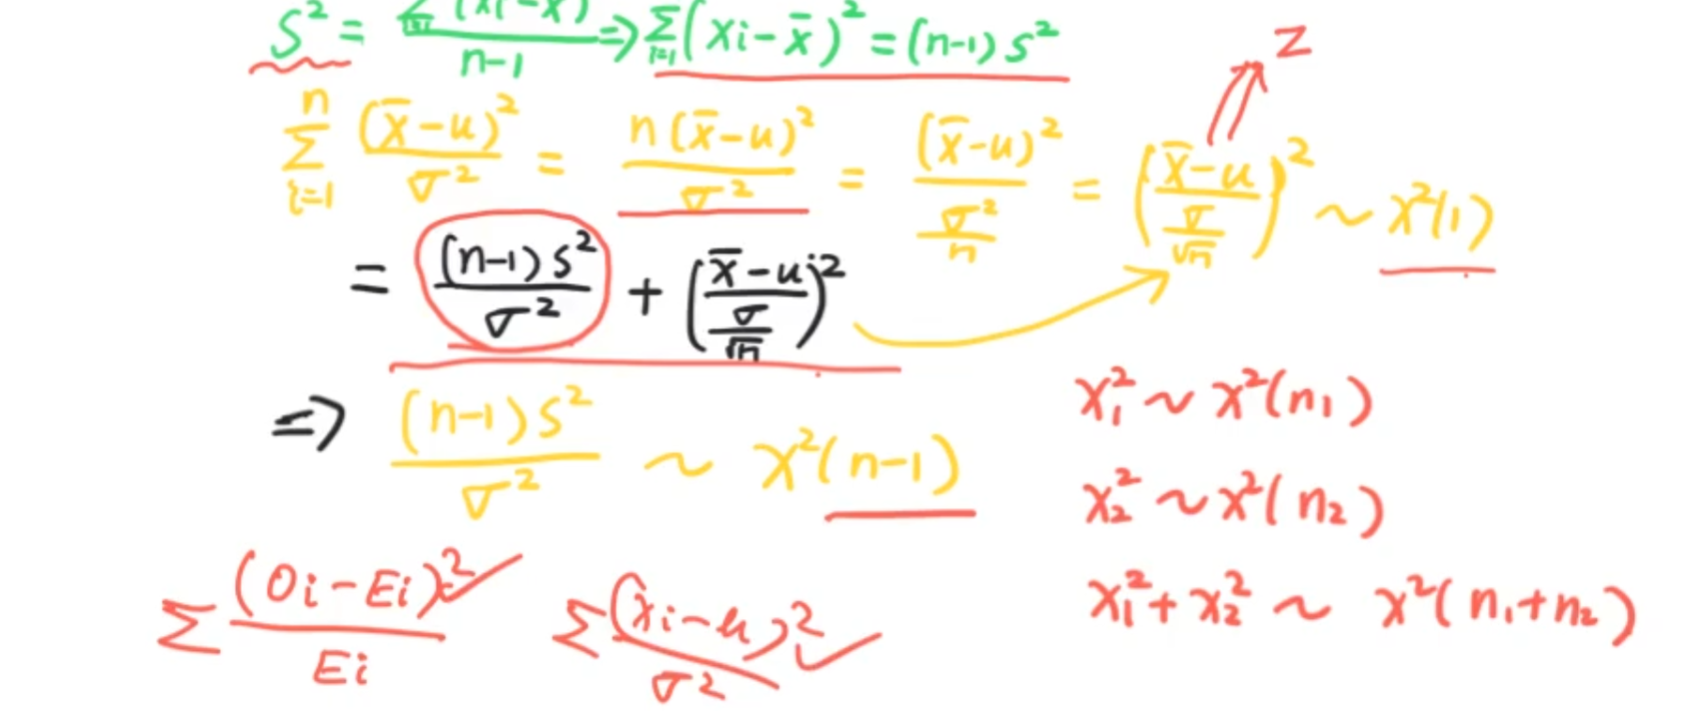 S² = Σᵢ₌₁(xi-x̄) / n-1 => Σᵢ₌₁(xi-x̄)² = (n-1)s²
z
Σᵢ₌₁ⁿ (x̄-u)²/σ² = n(x̄-u)²/σ² = (x̄-u)²/(σ²/n) = ((x̄-u)/(σ/√n))² ~ x²(1)
= (n-1)s²/σ² + ((x̄-u)/(σ/√n))²
=> (n-1)s²/σ² ~ x²(n-1)
x₁² ~ x²(n₁)
x₂² ~ x²(n₂)
x₁² + x₂² ~ x²(n₁+n₂)
Σ (Oi-Ei)²/Ei ✓ Σ (xi-u)²/σ² ✓